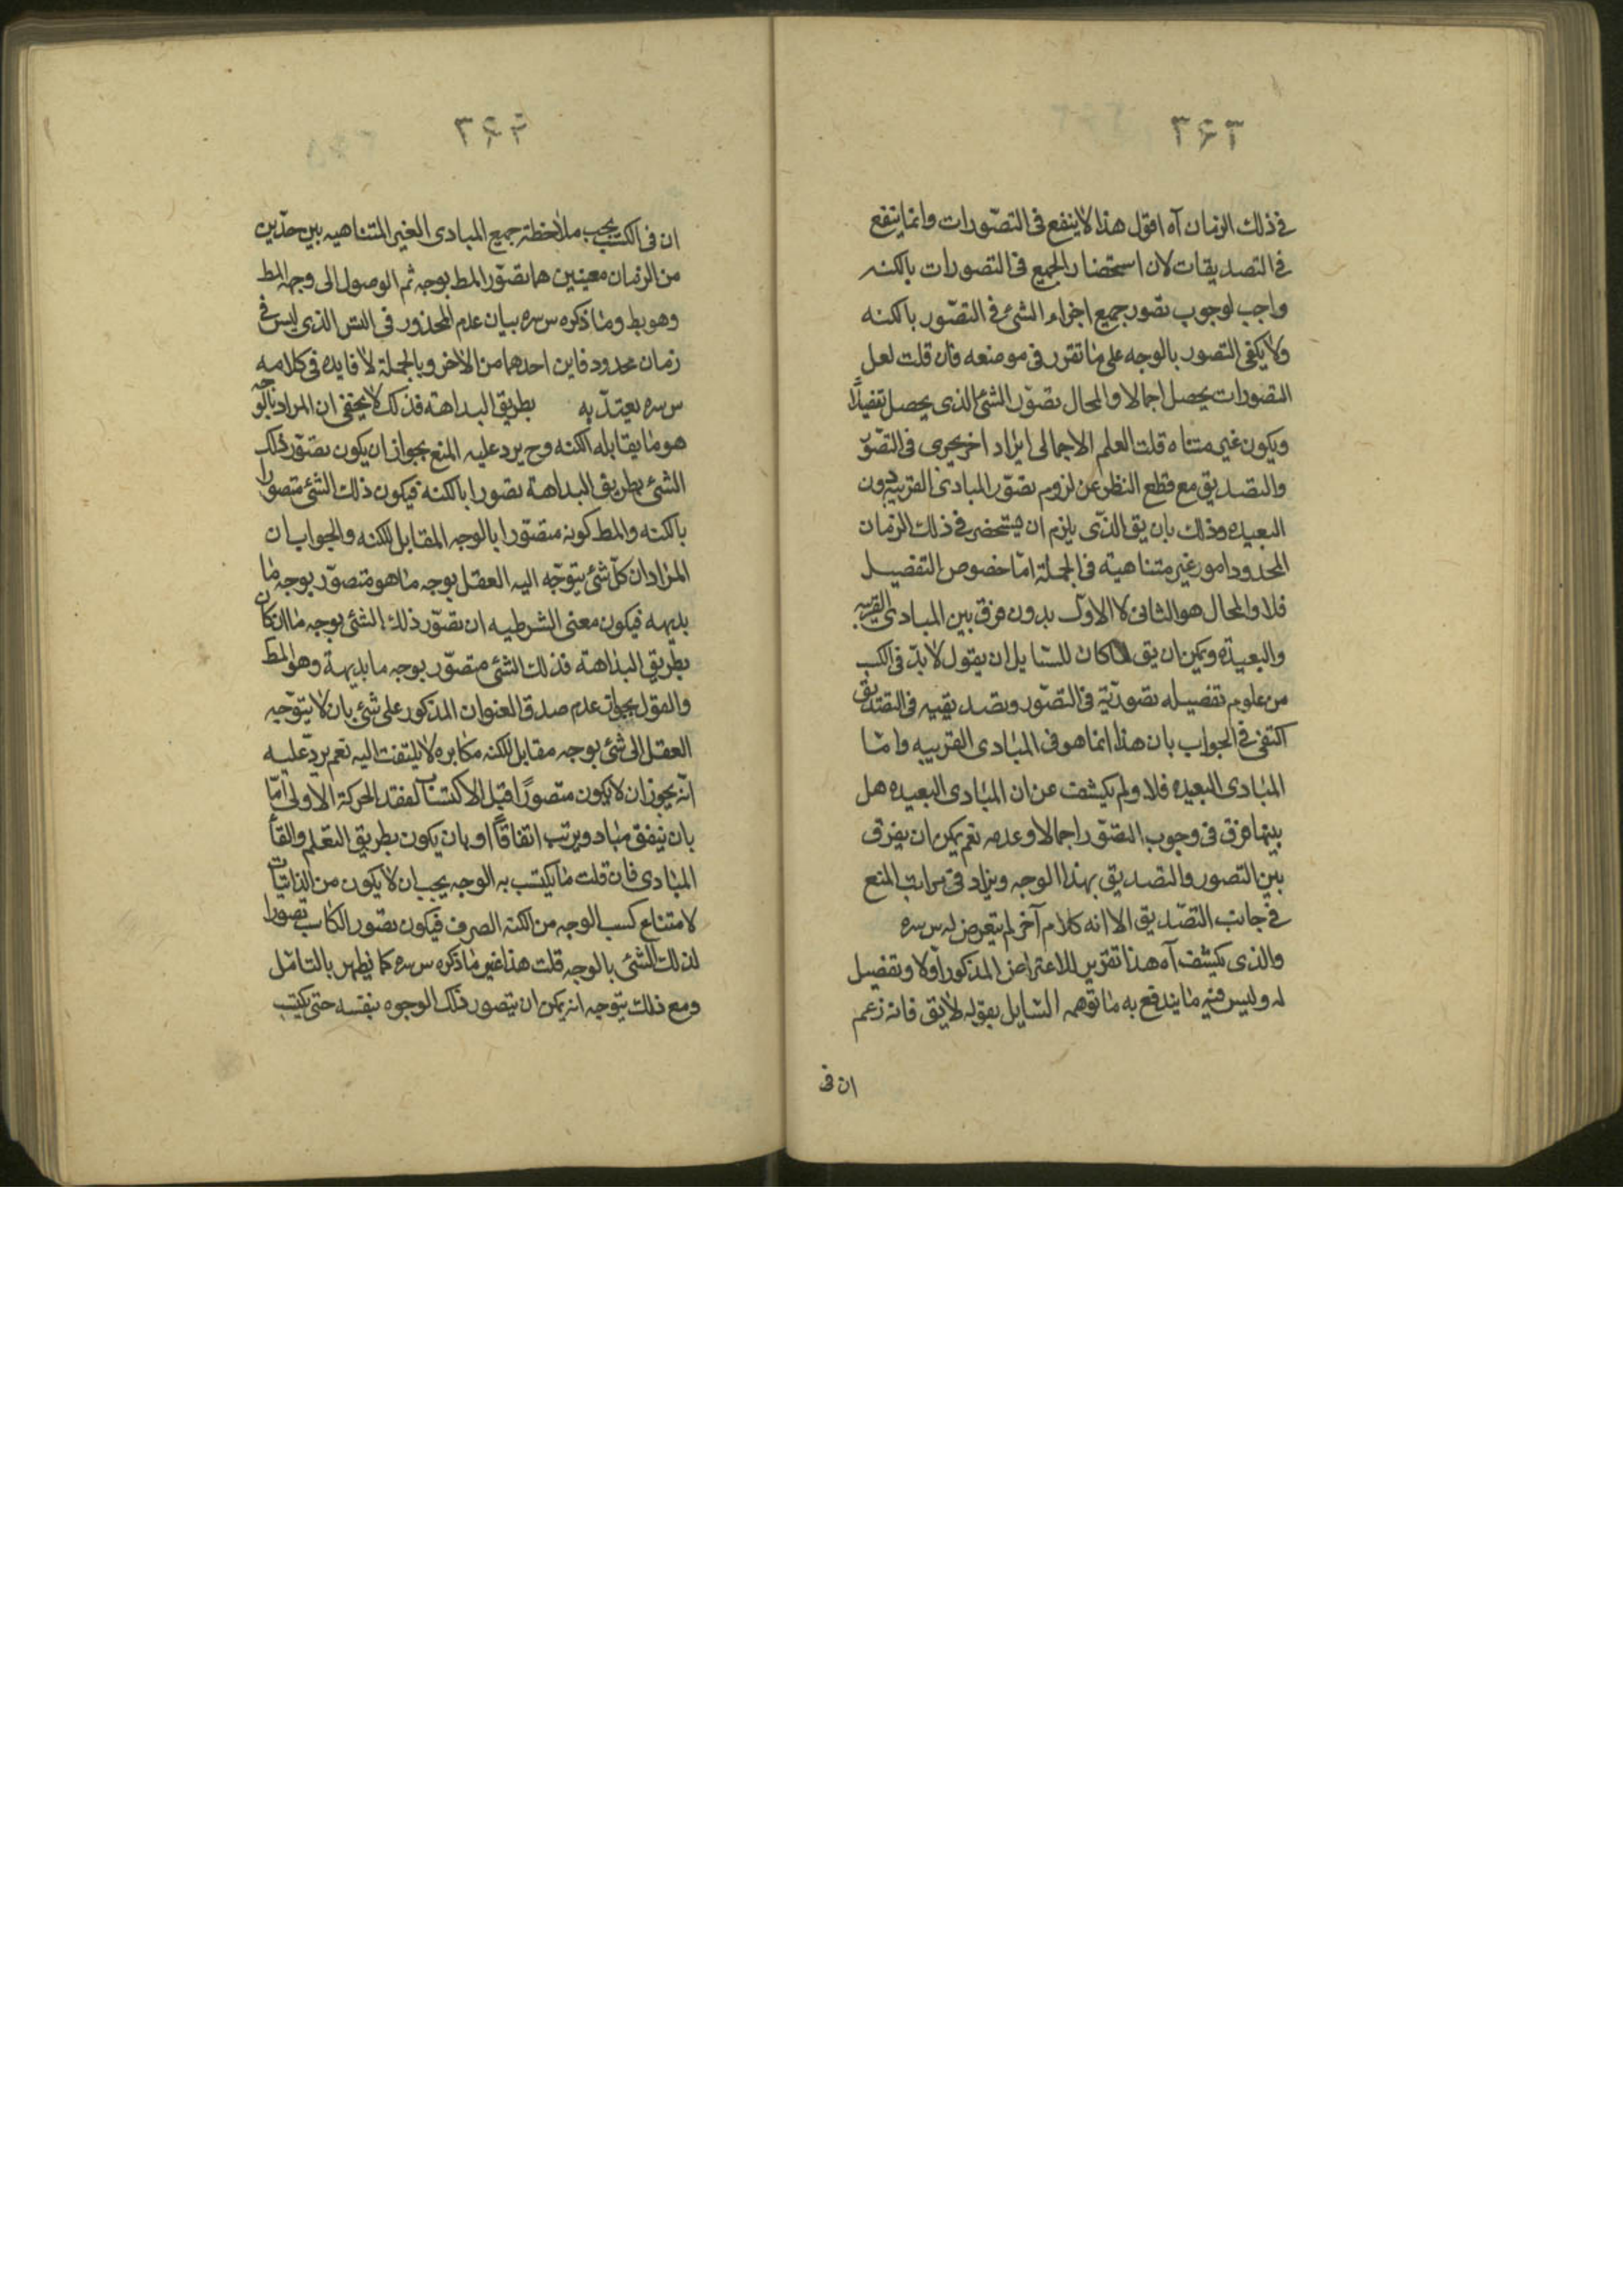 ٣۶٣
فى ذلك الزمان آه اقول هذا لا ينفع فى التصورات وانما ينفع
فى التصديقات لان استحضار الجميع فى التصورات بالكنه
واجب لوجوب تصور جميع اجزاء الشئ فى التصور بالكنه
ولا يكفى التصور بالوجه على ما تقرر فى موضعه فان قلت لعل
التصورات يحصل اجمالا والمحال تصور الشئ الذى يحصل تفصيلا
ويكون غير متناه قلت العلم الاجمالى ايراد اخر يجرى فى التصور
والتصديق مع قطع النظر عن لزوم تصور المبادى القريبه دون
البعيده وذلك بان يق الذى يلزم ان يستحضر فى ذلك الزمان
المحدود امور غير متناهية فى الجملة اما خصوص التفصيل
فلا والمحال هو الثانى لا الاول بدون فرق بين المبادى القريبه
والبعيدة ويمكن ان يق لما كان للسايل ان يقول لا بد فى الكسب
من علوم تفصيله تصورية فى التصور وتصديقيه فى التصديق
اكتفى فى الجواب بان هذا انما هو فى المبادى القريبه واما
المبادى البعيده فلا ولم يكشف عن ان المبادى البعيده هل
بينها فرق فى وجوب التصور اجمالا وعدمه نعم يمكن ان يفرق
بين التصور والتصديق بهذا الوجه ويزاد فى مراتب المنع
فى جانب التصديق الا انه كلام آخر لم يتعرض له س سره
والذى يكشف آه هذا تقرير للاعتراض المذكور اولا وتفصيل
له وليس فيه ما يندفع به ما توهمه السايل بقوله لا يق فانه زعم
ان فى
٣۶۴
ان فى الكسب يجب ملاحظة جميع المبادى الغير المتناهيه بين حدين
من الزمان معينين هما تصور المط بوجه ثم الوصول الى وجه المط
وهو بط وما ذكره س سره بيان عدم المحذور فى التس الذى ليس فى
زمان محدود فاين احدهما من الاخر وبالجملة لا فايده فى كلامه
س سره يعتد به بطريق البداهة فذلك لا يخفى ان المراد بالوجه
هو ما يقابله الكنه وح يرد عليه المنع بجواز ان يكون تصور ذلك
الشئ بطريق البداهة تصورا بالكنه فيكون ذلك الشئ متصورا
بالكنه والمط كونه متصورا بالوجه المقابل للكنه والجواب ان
المراد ان كل شئ يتوجه اليه العقل بوجه ما هو متصور بوجه ما
بديهه فيكون معنى الشرطيه ان تصور ذلك الشئ بوجه ما ان كان
بطريق البداهة فذلك الشئ متصور بوجه ما بديهة وهو المط
والقول بجواز عدم صدق العنوان المذكور على شئ بان لا يتوجه
العقل الى شئ بوجه مقابل للكنه مكابره لا يلتفت اليه نعم يرد عليه
انه يجوز ان لا يكون متصورا قبل الاكتساب لفقد الحركة الاولى اما
بان يتفق مباد ويرتب اتفاقا او بان يكون بطريق التعلم والقا
المبادى فان قلت ما يكتسب به الوجه يجب ان لا يكون من الذاتيات
لامتناع كسب الوجه من الكنه الصرف فيكون تصور الكاسب تصورا
لذلك الشئ بالوجه قلت هذا غير ما ذكره س سره كما يظهر بالتامل
ومع ذلك يتوجه انه يمكن ان يتصور ذلك الوجوه بنفسه حتى يكتسب